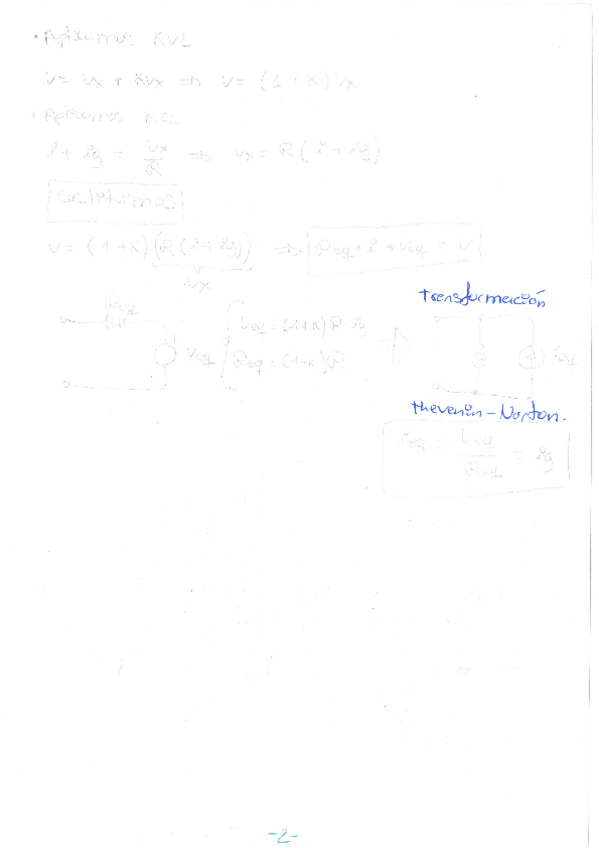 • Aplicamos KVL
V = Vx + KVx => V = (1 + K) Vx
• Aplicamos KCL
i + ig = Vx / R => Vx = R (i + ig)
Sustituimos
V = (1+K) (R (i + ig)) => Req · i + Veq = V
Vx
Req
Veq
Veq = (1+K) R ig
Req = (1+K) R
Transformación
ieq
thevenin - Norton.
ieq = Veq / Req = ig
-2-